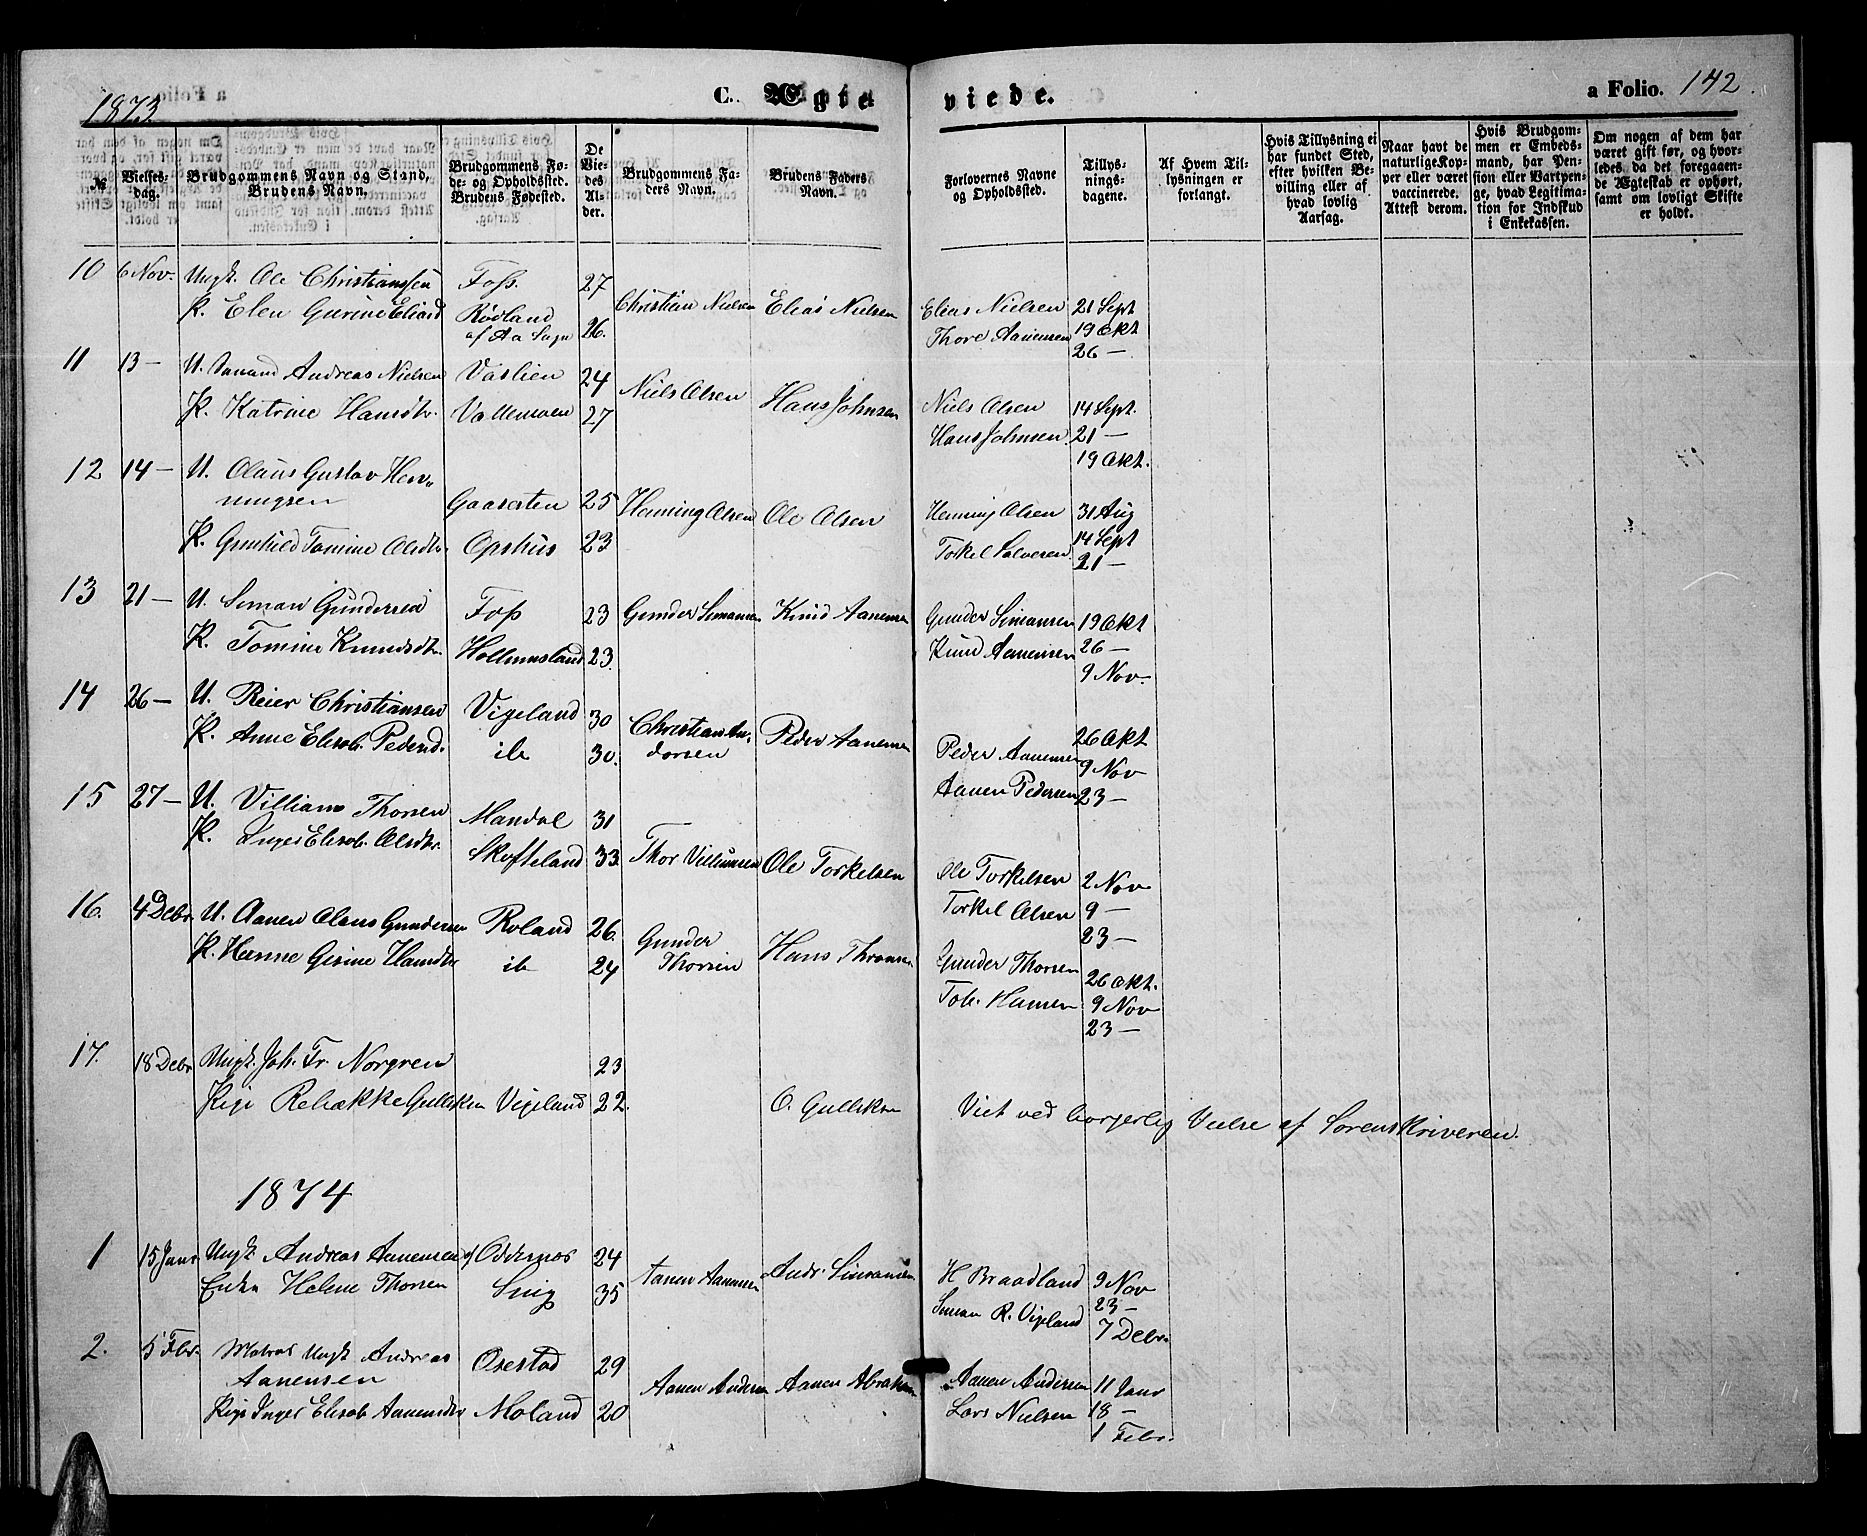 1873.
C. Ægteviede.
a Folio. 142.
№
Vielsesdag.
Brudgommens Navn og Stand, Brudens Navn.
Brudgommens Føde- og Opholdssted. Brudens Fødested.
De Viedes Alder.
Brudgommens Faders Navn.
Brudens Faders Navn.
Forlovernes Navne og Opholdssted.
Tillysningsdagene.
Af Hvem Tillysningen er forlangt.
Hvis Tillysning ei har fundet Sted, efter hvilken Bevilling eller af hvad lovlig Aarsag.
Naar havt de naturlige Kopper eller været vaccinerede. Attest derom.
Hvis Brudgommen er Embedsmand, har Pension eller Vartpenge, hvad Legitimation for Indskud i Enkekassen.
Om nogen af dem har været gift før, og hvorledes da det foregaaende Ægteskab er ophørt, samt om lovligt Skifte er holdt.
10 6 Nov. Ungk. Ole Christianssen Foss. 27 Christian Nielsen Elias Nielsen Elias Nielsen 21 Sept
P. Elen Gurine Eliasd Rødland af Aa Sogn 26. Thore Aanensen 19 Okt
26 —
11 13 — U. Andreas Nielsen Vaslien 24 Niels Olsen Hans Johnsen Niels Olsen 14 Sept.
P. Katrine Hansdtr. Vallemoen 27 Hans Johnsen 21 —
19 Okt.
12 14 — U. Olaus Gustav Henningsen Gaaseraten 25 Henning Olsen Ole Olsen Henning Olsen 31 Aug
P. Gunhild Tomine Olsdtr. Opshus 23 Torkel Salvesen 14 Sept
21 —
13 21 — U. Simon Gundersen Foss 23 Gunder Simonsen Knud Aanensen Gunder Simonsen 19 Okt
P. Tomine Knudsdtr. Hollumsland 23. Knud Aanensen 26 —
9 Nov.
14 26 — U. Reier Christiansen Vigeland 30 Christian Andorsen Peder Aanensen Peder Aanensen 26 Okt
P. Anne Elisab. Pedersd. ib 30. Aanen Pedersen 9 Nov
23 —
15 27 — U. Villiam Thorsen Mandal 31 Thor Villumsen Ole Torkelsen Ole Torkelsen 2 Nov
P. Inger Elisab. Olsdtr. Skofteland 33. Torkel Olsen 9 —
23 —
16. 4 Debr. U. Aanen Olaus Gundersen Roland 26. Gunder Thorsen Hans Thronsen Gunder Thorsen 26 Okt.
P. Hanne Gesine Hansdtr ib 24 Tob. Hansen 9 Nov
23 —
17. 18 Debr Ungk. Joh. Fr. Norgren 23
Pige Rebække Gulliksen Vigeland 22. O. Gulliksen Viet ved borgerlig Vielse af Sorenskriveren.
1874
1 15 Janr Ungk. Andreas Aanensen af Oddernes 24 Aanen Aanensen Andr. Simonsen H Braadland 9 Nov
Enke Helene Thorsen Snig 35 Simon R. Vigeland 23 —
7 Debr.
2. 5 Febr. Matros Ungk Andreas Aanensen Osestad 29 Aanen Andersen Aanen Abraham Aanen Andersen 11 Janr
Pige Inger Elisab. Aanensdtr Moland 20 Lars Nielsen 18 —
1 Febr.